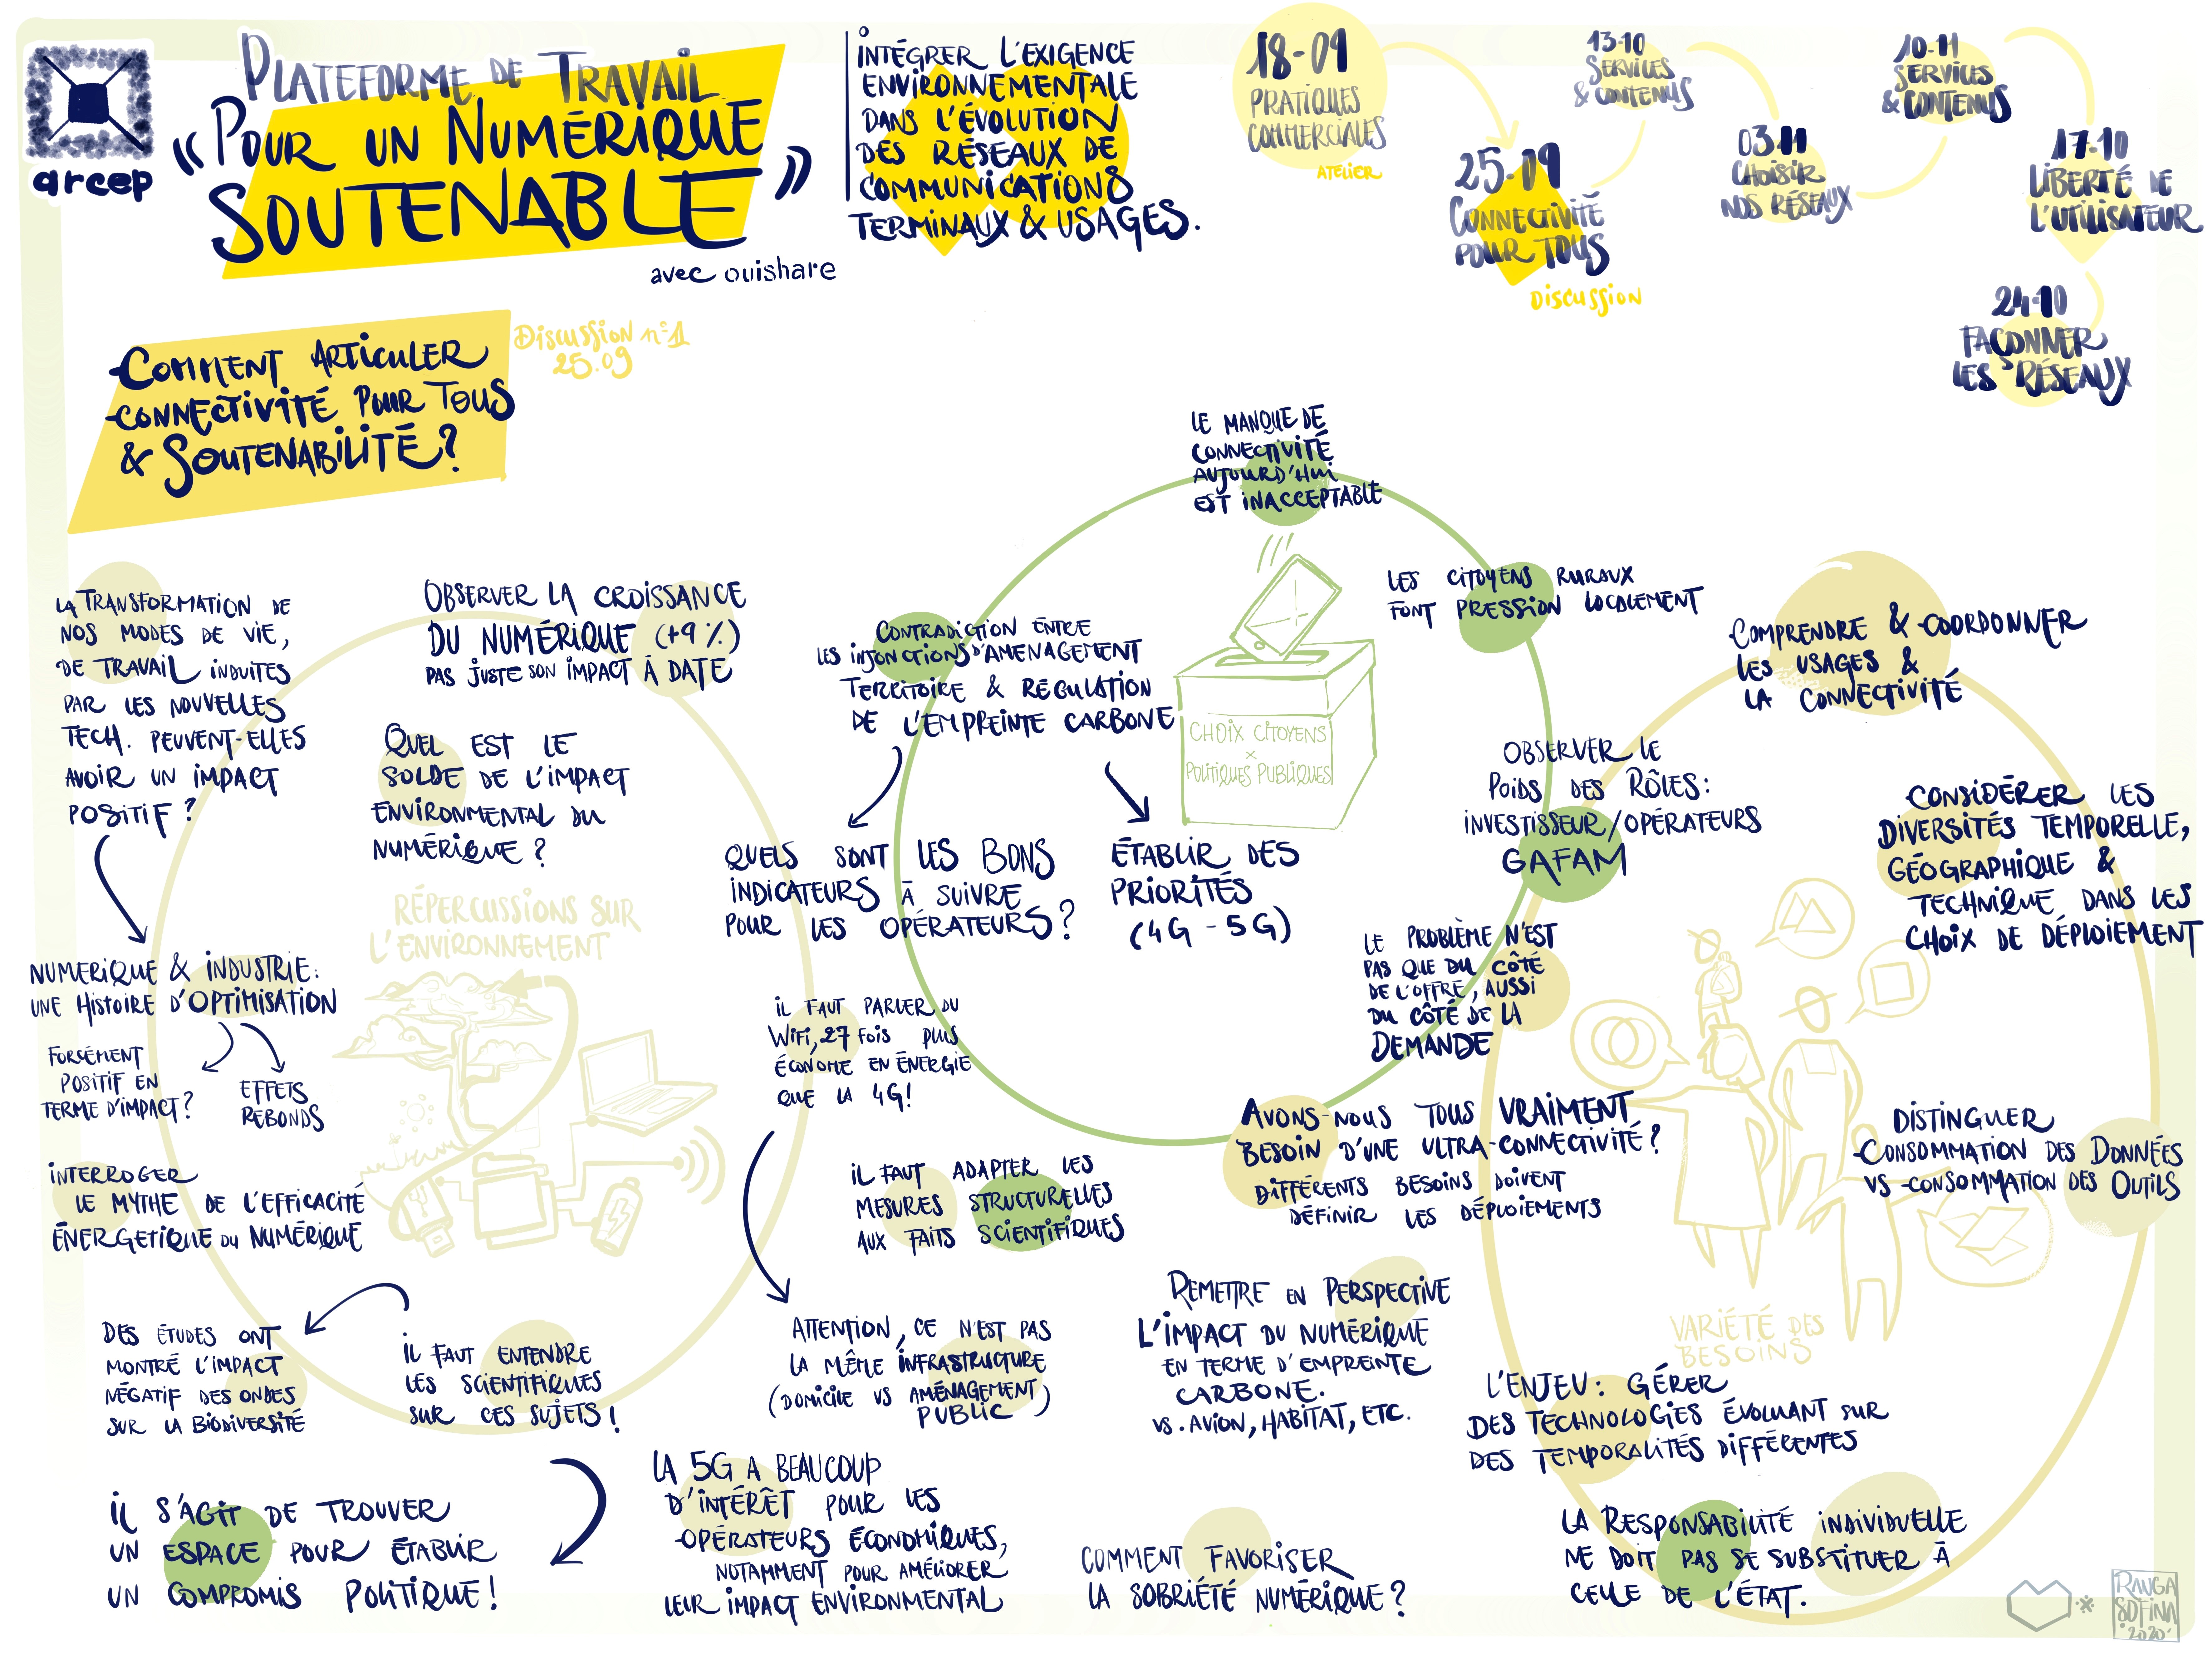 arcep
PLATEFORME DE TRAVAIL
« POUR UN NUMÉRIQUE
SOUTENABLE »
avec ouishare
INTÉGRER L'EXIGENCE
ENVIRONNEMENTALE
DANS L'ÉVOLUTION
DES RÉSEAUX DE
COMMUNICATIONS
TERMINAUX & USAGES.
18-09
PRATIQUES
COMMERCIALES
ATELIER
25-09
CONNECTIVITÉ
POUR TOUS
DISCUSSION
13-10
SERVICES
& CONTENUS
03-11
CHOISIR
NOS RÉSEAUX
10-11
SERVICES
& CONTENUS
17-10
LIBERTÉ DE
L'UTILISATEUR
24-10
FAÇONNER
LES RÉSEAUX
COMMENT ARTICULER
CONNECTIVITÉ POUR TOUS
& SOUTENABILITÉ?
Discussion n°1
25.09
LA TRANSFORMATION DE
NOS MODES DE VIE,
DE TRAVAIL INDUITES
PAR LES NOUVELLES
TECH. PEUVENT-ELLES
AVOIR UN IMPACT
POSITIF?
NUMERIQUE & INDUSTRIE:
UNE HISTOIRE D'OPTIMISATION
FORCÉMENT
POSITIF EN
TERME D'IMPACT?
EFFETS
REBONDS
INTERROGER
LE MYTHE DE L'EFFICACITÉ
ÉNERGETIQUE DU NUMÉRIQUE
OBSERVER LA CROISSANCE
DU NUMÉRIQUE (+9%)
PAS JUSTE SON IMPACT À DATE
QUEL EST LE
SOLDE DE L'IMPACT
ENVIRONMENTAL DU
NUMÉRIQUE?
RÉPERCUSSIONS SUR
L'ENVIRONNEMENT
DES ÉTUDES ONT
MONTRÉ L'IMPACT
NÉGATIF DES ONDES
SUR LA BIODIVERSITÉ
IL FAUT ENTENDRE
LES SCIENTIFIQUES
SUR CES SUJETS!
IL S'AGIT DE TROUVER
UN ESPACE POUR ÉTABLIR
UN COMPROMIS POLITIQUE!
LE MANQUE DE
CONNECTIVITÉ
AUJOURD'HUI
EST INACCEPTABLE
CONTRADICTION ENTRE
LES INJONCTIONS D'AMENAGEMENT
TERRITOIRE & RÉGULATION
DE L'EMPREINTE CARBONE
CHOIX CITOYENS
x
POLITIQUES PUBLIQUES
LES CITOYENS RURAUX
FONT PRESSION LOCALEMENT
QUELS SONT LES BONS
INDICATEURS À SUIVRE
POUR LES OPÉRATEURS?
ÉTABLIR DES
PRIORITÉS
(4G - 5G)
OBSERVER LE
POIDS DES RÔLES:
INVESTISSEUR/OPÉRATEURS
GAFAM
LE PROBLÈME N'EST
PAS QUE DU CÔTÉ
DE L'OFFRE, AUSSI
DU CÔTÉ DE LA
DEMANDE
IL FAUT PARLER DU
WIFI, 27 FOIS PLUS
ÉCONOME EN ÉNERGIE
QUE LA 4G!
IL FAUT ADAPTER LES
MESURES STRUCTURELLES
AUX FAITS SCIENTIFIQUES
ATTENTION, CE N'EST PAS
LA MÊME INFRASTRUCTURE
(DOMICILE VS AMÉNAGEMENT
PUBLIC)
LA 5G A BEAUCOUP
D'INTÉRÊT POUR LES
OPÉRATEURS ÉCONOMIQUES,
NOTAMMENT POUR AMÉLIORER
LEUR IMPACT ENVIRONMENTAL
AVONS-NOUS TOUS VRAIMENT
BESOIN D'UNE ULTRA-CONNECTIVITÉ?
DIFFÉRENTS BESOINS DOIVENT
DÉFINIR LES DÉPLOIEMENTS
REMETTRE EN PERSPECTIVE
L'IMPACT DU NUMÉRIQUE
EN TERME D'EMPREINTE
CARBONE.
VS. AVION, HABITAT, ETC.
COMMENT FAVORISER
LA SOBRIÉTÉ NUMÉRIQUE?
COMPRENDRE & COORDONNER
LES USAGES &
LA CONNECTIVITÉ
CONSIDÉRER LES
DIVERSITÉS TEMPORELLE,
GÉOGRAPHIQUE &
TECHNIQUE DANS LES
CHOIX DE DÉPLOIEMENT
DISTINGUER
CONSOMMATION DES DONNÉES
VS CONSOMMATION DES OUTILS
VARIÉTÉ DES
BESOINS
L'ENJEU: GÉRER
DES TECHNOLOGIES ÉVOLUANT SUR
DES TEMPORALITÉS DIFFÉRENTES
LA RESPONSABILITÉ INDIVIDUELLE
NE DOIT PAS SE SUBSTITUER À
CELLE DE L'ÉTAT.
RANGA
SOFINA
2020